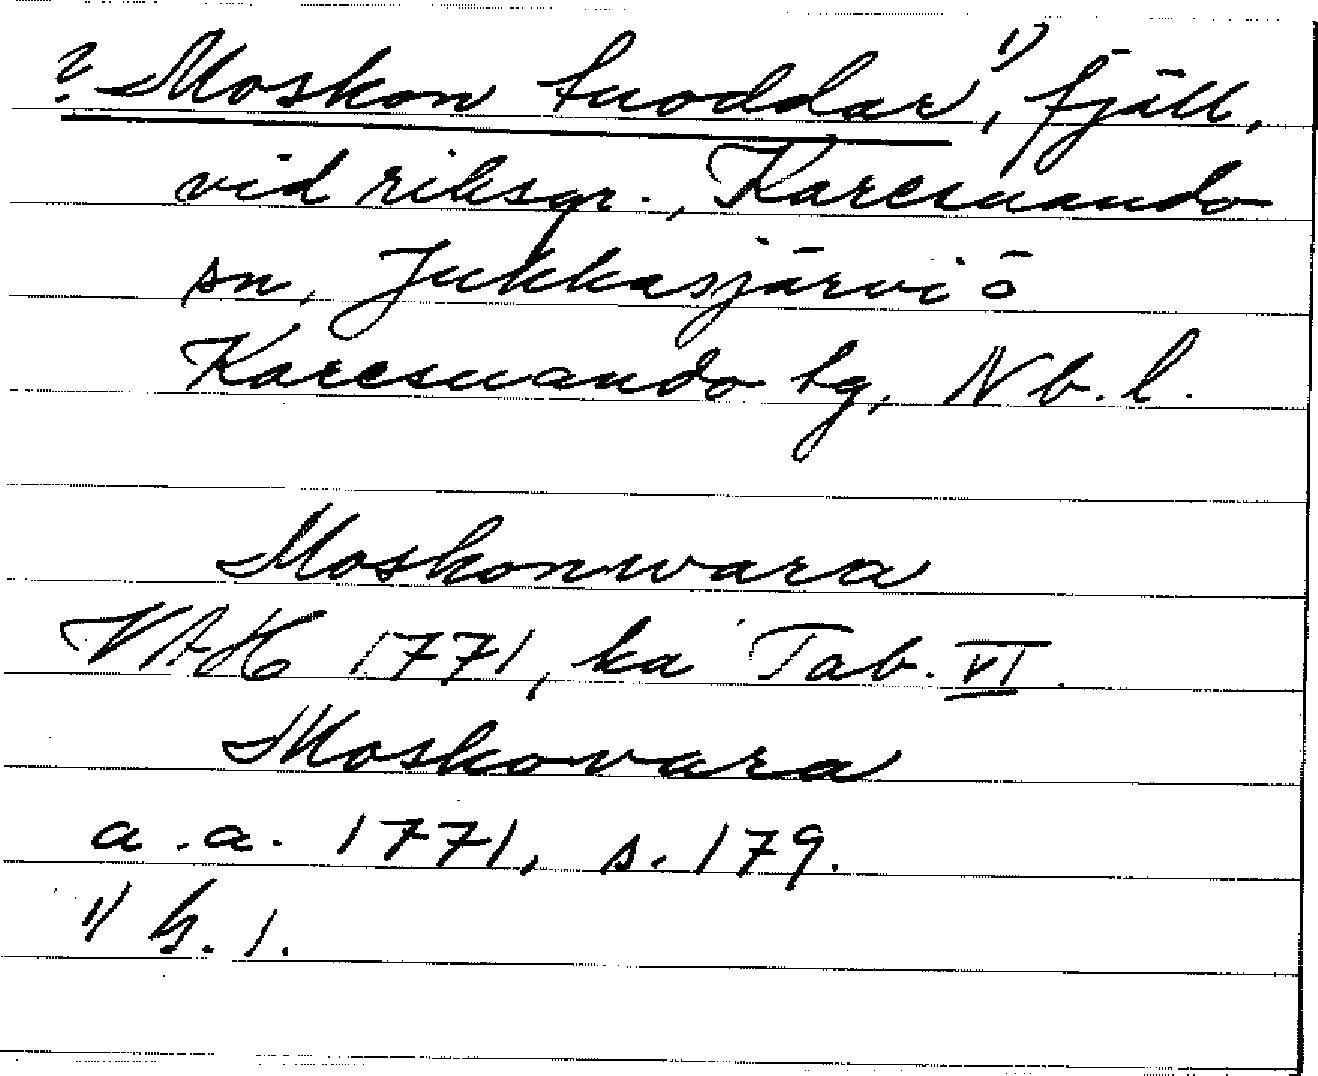 ? Moskon tuoddar¹⁾, fjäll,
vid riksgr., Karesuando
sn, Jukkasjärvi o
Karesuando tg, Nb. l.
Moskonwara
VAH 1771, ka Tab. VI.
Moskovara
a. a. 1771, s. 179.
¹⁾ b. 1.